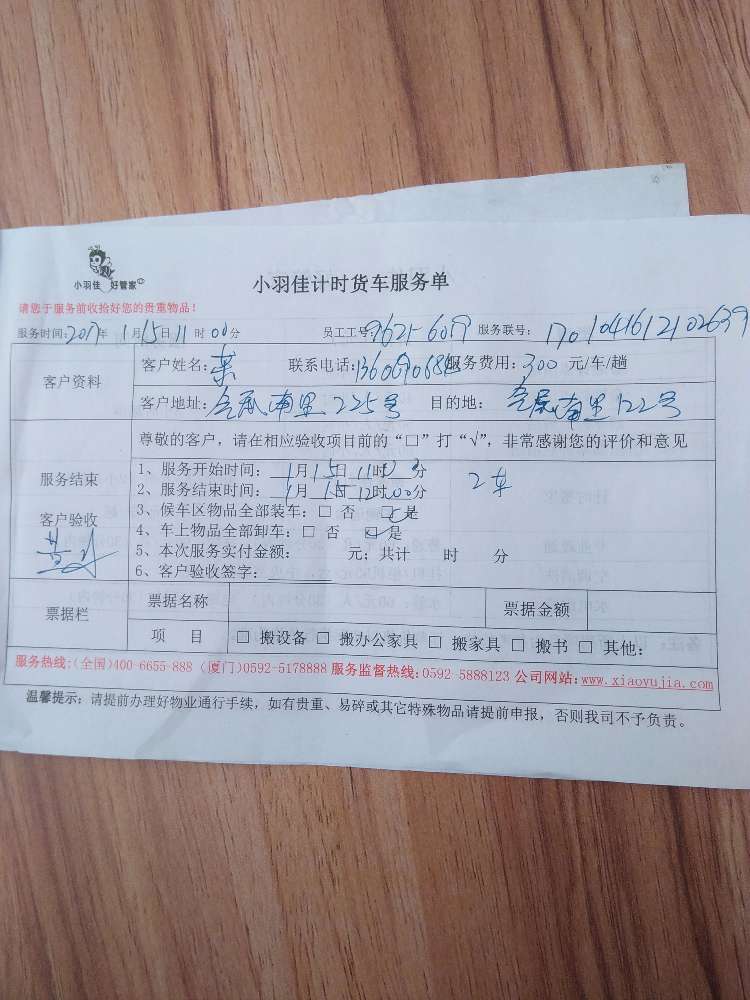 小羽佳 好管家
小羽佳计时货车服务单
请您于服务前收拾好您的贵重物品！
服务时间:2017年 1月15日11时00分 员工工号:9621-6019 服务联号:1701041612102639
客户资料
客户姓名: 联系电话: 服务费用:300 元/车/趟
客户地址:会展南里225号 目的地:会展南里122号
尊敬的客户，请在相应验收项目前的“□”打“√”，非常感谢您的评价和意见
服务结束
客户验收
1、服务开始时间: 1月15日11时 分
2、服务结束时间: 1月15日12时00分
2车
3、候车区物品全部装车:□ 否 ☑ 是
4、车上物品全部卸车:□ 否 ☑ 是
5、本次服务实付金额: 元; 共计 时 分
6、客户验收签字:
票据栏
票据名称 票据金额
项 目 □ 搬设备 □ 搬办公家具 □ 搬家具 □ 搬书 □ 其他:
服务热线:(全国)400-6655-888 (厦门)0592-5178888 服务监督热线:0592-5888123 公司网站:www.xiaoyujia.com
温馨提示: 请提前办理好物业通行手续，如有贵重、易碎或其它特殊物品请提前申报，否则我司不予负责。